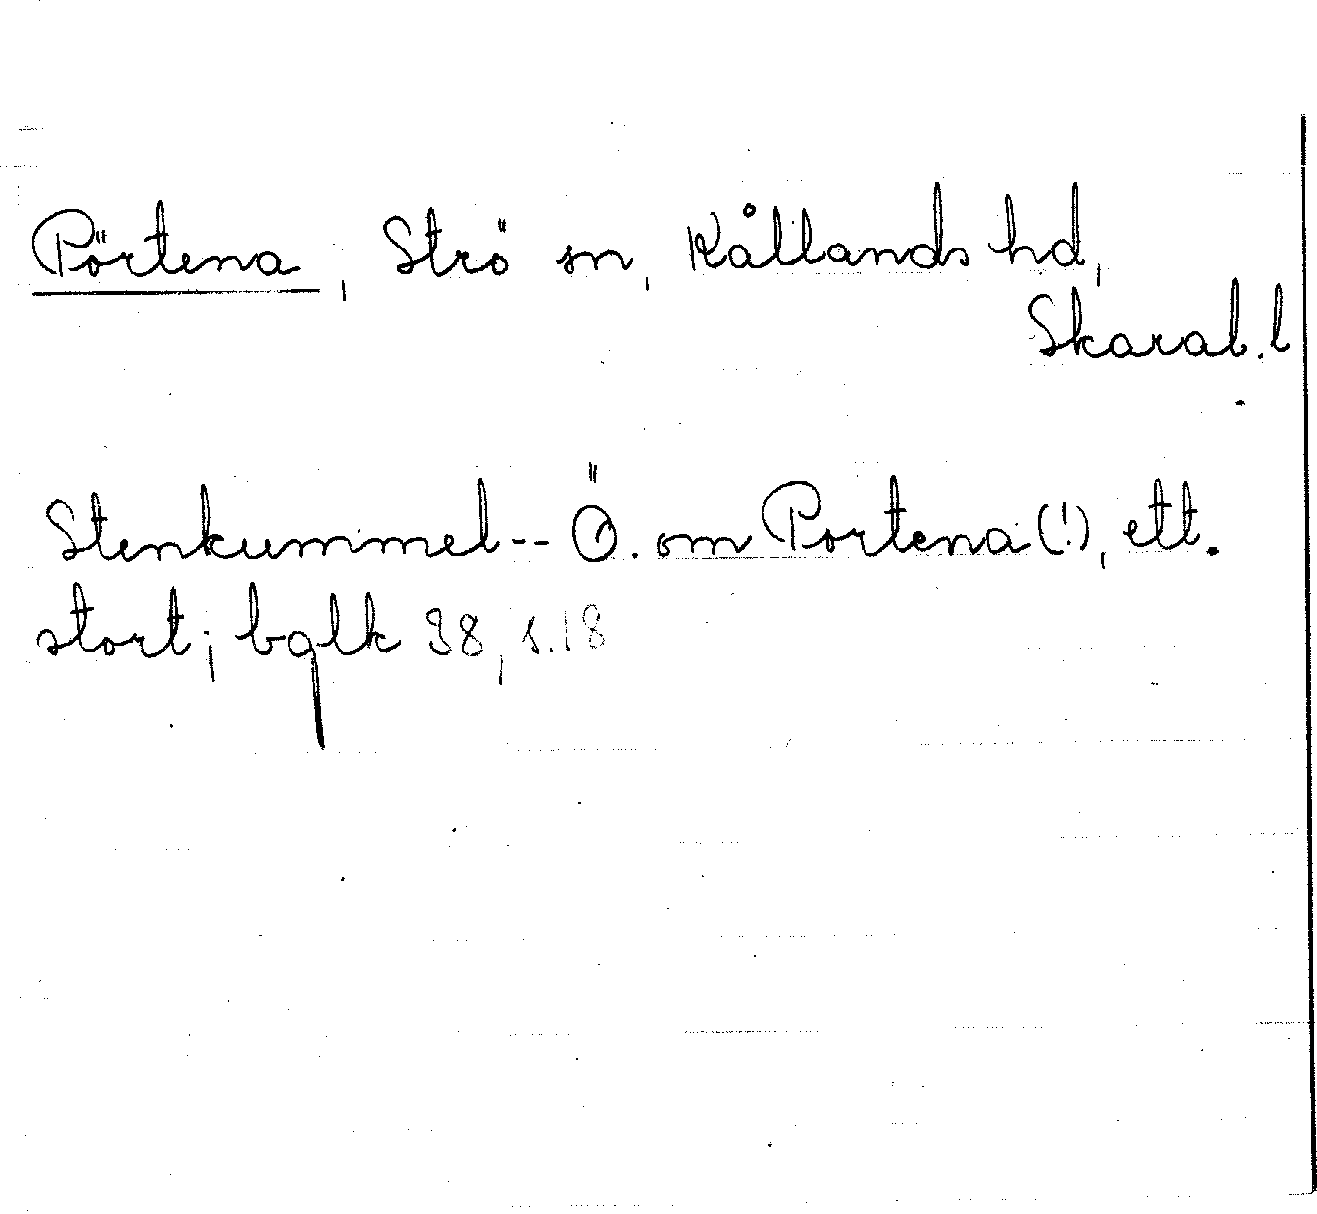 Pörtena, Strö sn, Kållands hd,
Skarab. l
Stenkummel -- Ö. om Portena (!), ett.
stort; bglk 38, s. 18